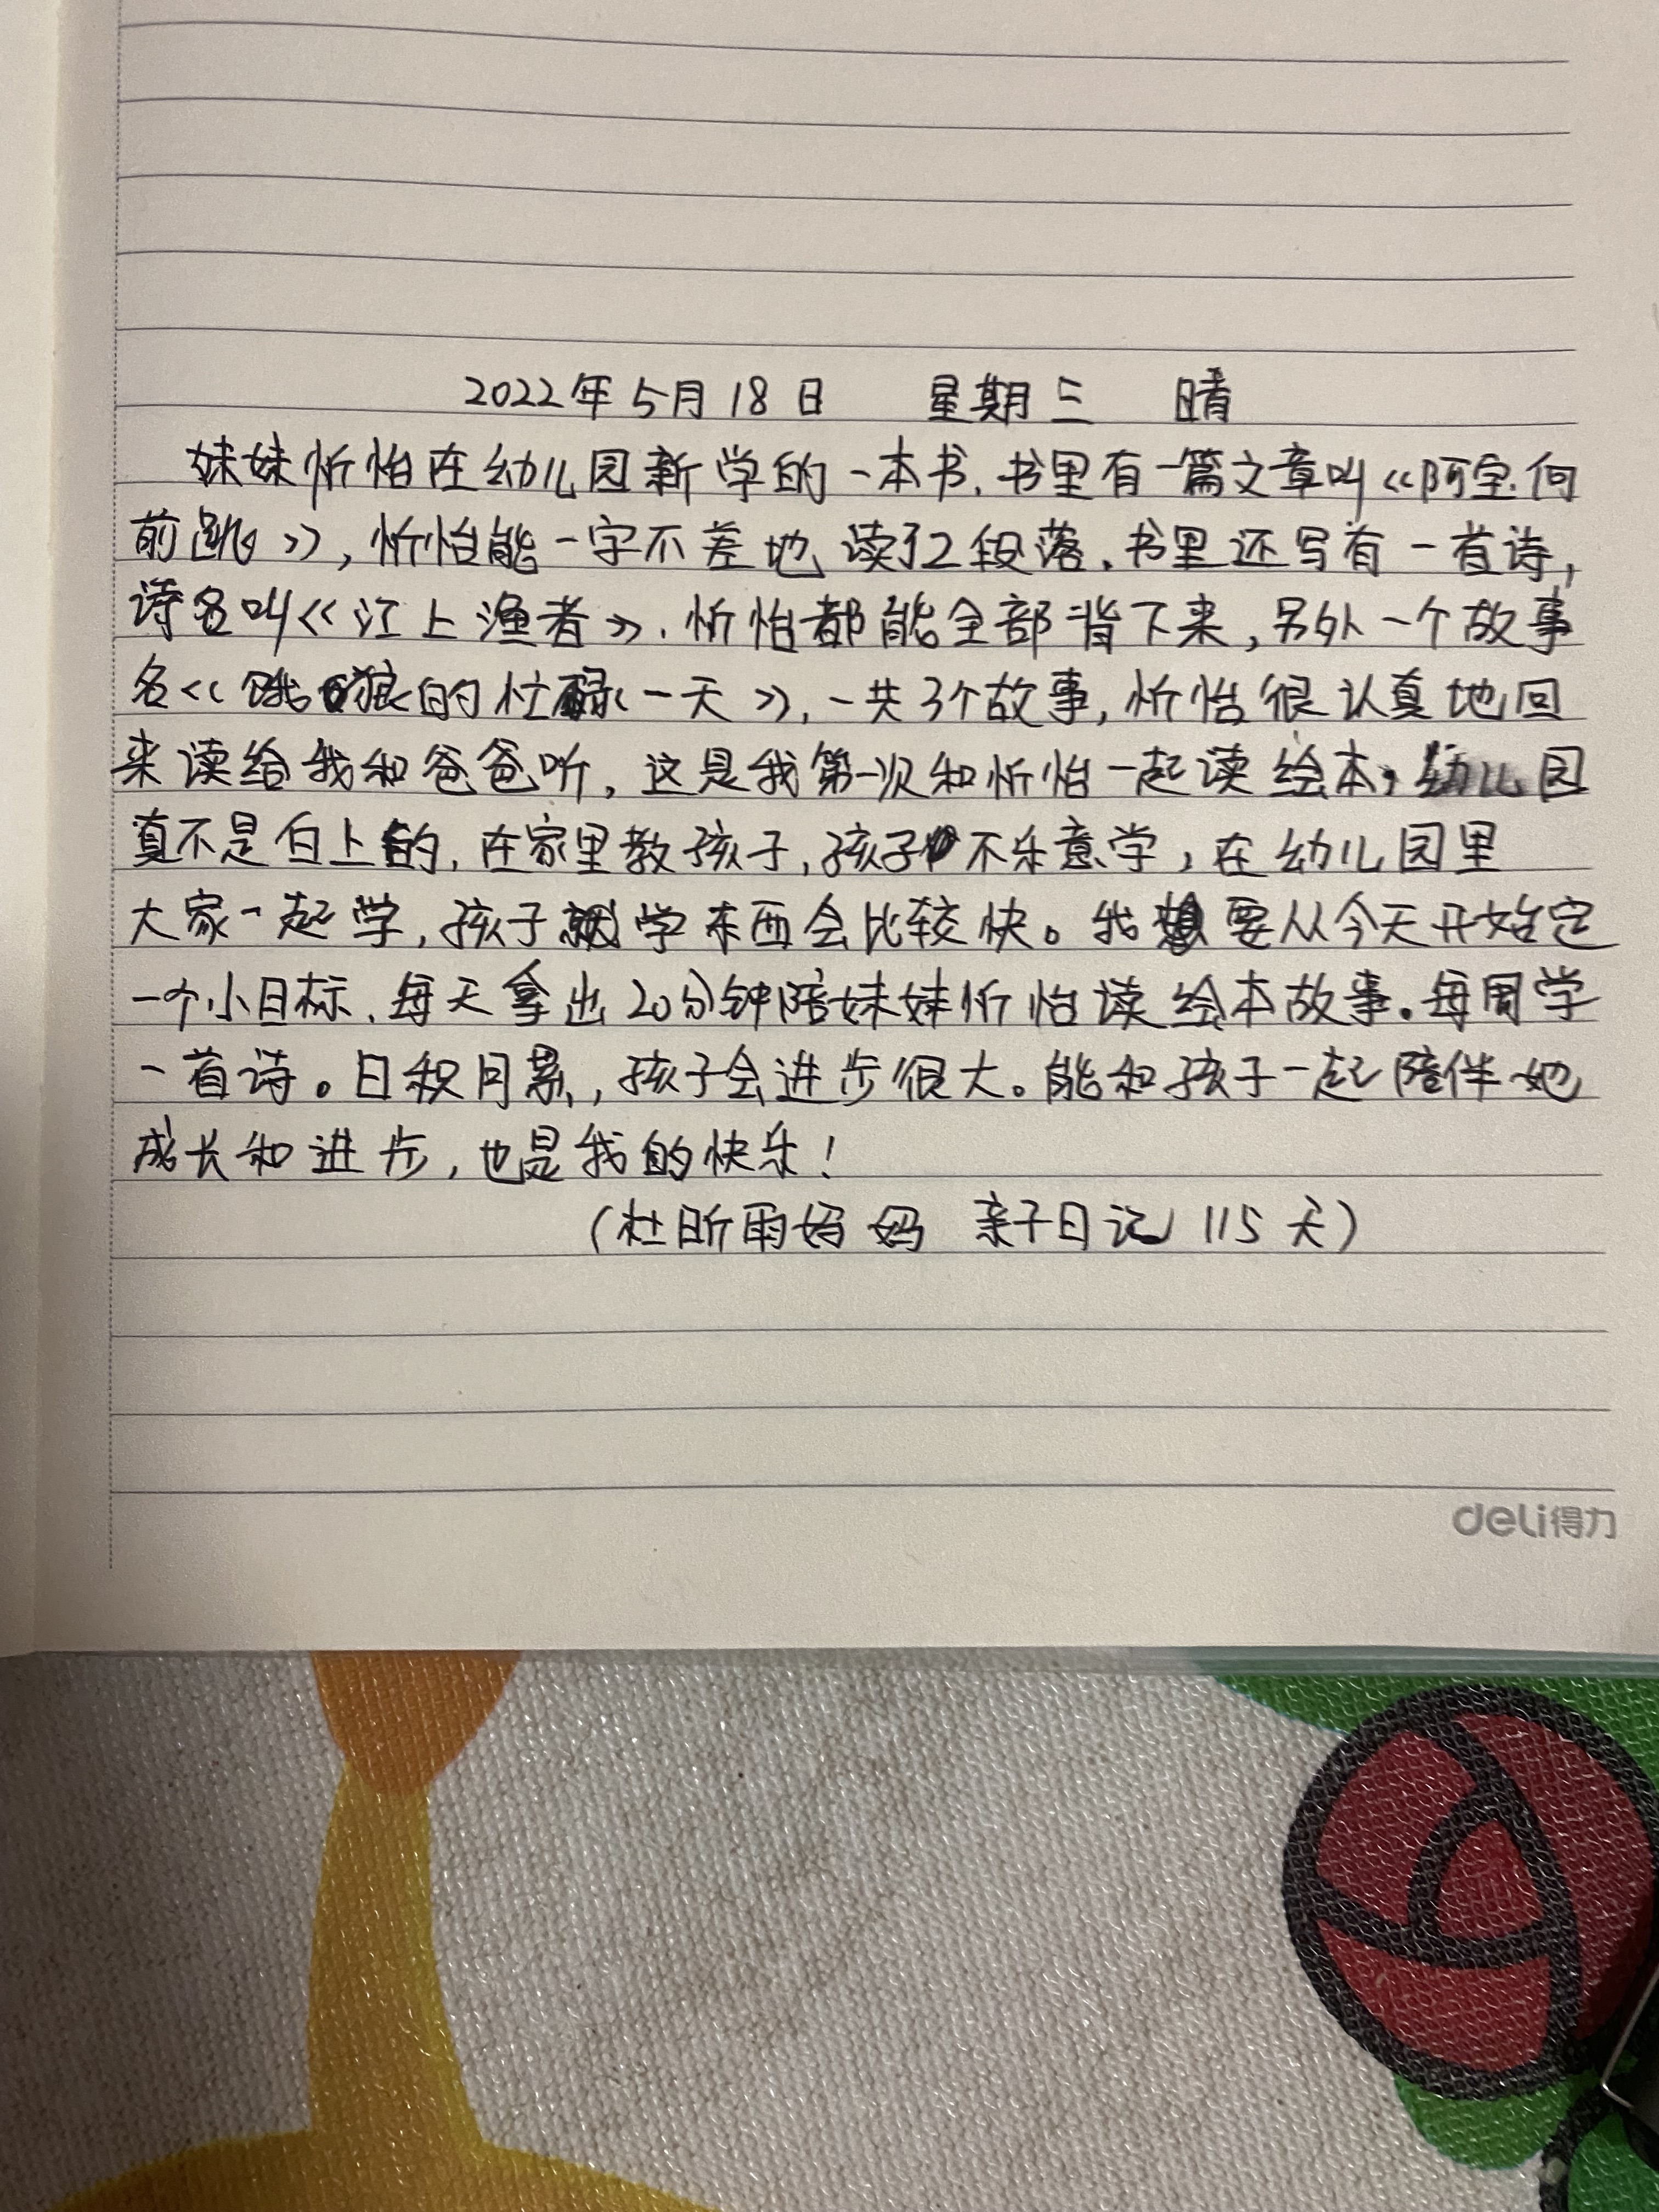 2022年5月18日 星期三 晴
妹妹忻怡在幼儿园新学的一本书,书里有一篇文章叫《阿宝向
前跳》,忻怡能一字不差地读了2段落,书里还写有一首诗,
诗名叫《江上渔者》,忻怡都能全部背下来,另外一个故事
名《饿狼的忙碌一天》,一共3个故事,忻怡很认真地回
来读给我和爸爸听,这是我第一次和忻怡一起读绘本,幼儿园
真不是白上的,在家里教孩子,孩子不乐意学,在幼儿园里
大家一起学,孩子学东西会比较快。我要从今天开始定
一个小目标,每天拿出20分钟陪妹妹忻怡读绘本故事。每周学
一首诗。日积月累,孩子会进步很大。能和孩子一起陪伴她
成长和进步,也是我的快乐!
(杜昕雨妈妈 亲子日记 115天)
deli得力